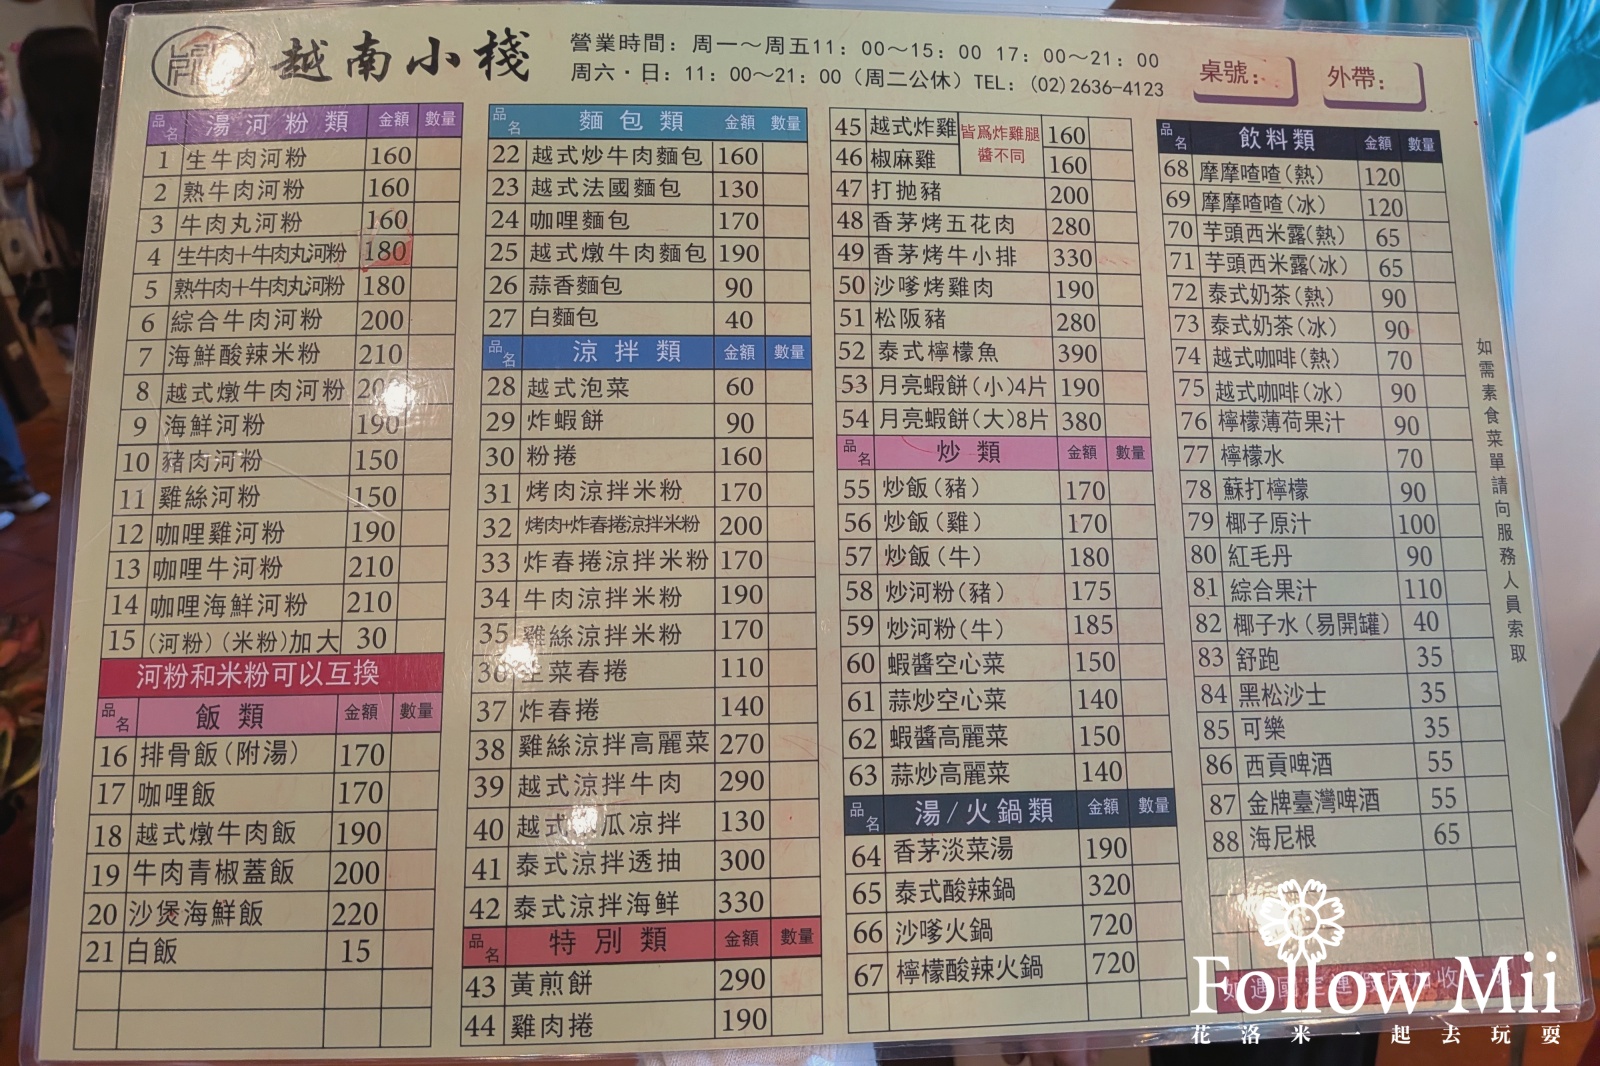 越南小棧
營業時間：周一～周五11：00～15：00 17：00～21：00
周六·日：11：00～21：00（周二公休）TEL：(02)2636-4123
桌號：
外帶：
品名 湯河粉類 金額 數量
1 生牛肉河粉 160
2 熟牛肉河粉 160
3 牛肉丸河粉 160
4 生牛肉+牛肉丸河粉 180
5 熟牛肉+牛肉丸河粉 180
6 綜合牛肉河粉 200
7 海鮮酸辣米粉 210
8 越式燉牛肉河粉
9 海鮮河粉 190
10 豬肉河粉 150
11 雞絲河粉 150
12 咖哩雞河粉 190
13 咖哩牛河粉 210
14 咖哩海鮮河粉 210
15 (河粉)(米粉)加大 30
河粉和米粉可以互換
品名 飯類 金額 數量
16 排骨飯(附湯) 170
17 咖哩飯 170
18 越式燉牛肉飯 190
19 牛肉青椒蓋飯 200
20 沙煲海鮮飯 220
21 白飯 15
品名 麵包類 金額 數量
22 越式炒牛肉麵包 160
23 越式法國麵包 130
24 咖哩麵包 170
25 越式燉牛肉麵包 190
26 蒜香麵包 90
27 白麵包 40
品名 涼拌類 金額 數量
28 越式泡菜 60
29 炸蝦餅 90
30 粉捲 160
31 烤肉涼拌米粉 170
32 烤肉+炸春捲涼拌米粉 200
33 炸春捲涼拌米粉 170
34 牛肉涼拌米粉 190
35 雞絲涼拌米粉 170
36 生菜春捲 110
37 炸春捲 140
38 雞絲涼拌高麗菜 270
39 越式涼拌牛肉 290
40 越式 瓜凉拌 130
41 泰式涼拌透抽 300
42 泰式涼拌海鮮 330
品名 特別類 金額 數量
43 黃煎餅 290
44 雞肉捲 190
45 越式炸雞 160
46 椒麻雞 160
皆爲炸雞腿
醬不同
47 打拋豬 200
48 香茅烤五花肉 280
49 香茅烤牛小排 330
50 沙嗲烤雞肉 190
51 松阪豬 280
52 泰式檸檬魚 390
53 月亮蝦餅(小)4片 190
54 月亮蝦餅(大)8片 380
品名 炒類 金額 數量
55 炒飯(豬) 170
56 炒飯(雞) 170
57 炒飯(牛) 180
58 炒河粉(豬) 175
59 炒河粉(牛) 185
60 蝦醬空心菜 150
61 蒜炒空心菜 140
62 蝦醬高麗菜 150
63 蒜炒高麗菜 140
品名 湯/火鍋類 金額 數量
64 香茅淡菜湯 190
65 泰式酸辣鍋 320
66 沙嗲火鍋 720
67 檸檬酸辣火鍋 720
品名 飲料類 金額 數量
68 摩摩喳喳(熱) 120
69 摩摩喳喳(冰) 120
70 芋頭西米露(熱) 65
71 芋頭西米露(冰) 65
72 泰式奶茶(熱) 90
73 泰式奶茶(冰) 90
74 越式咖啡(熱) 70
75 越式咖啡(冰) 90
76 檸檬薄荷果汁 90
77 檸檬水 70
78 蘇打檸檬 90
79 椰子原汁 100
80 紅毛丹 90
81 綜合果汁 110
82 椰子水(易開罐) 40
83 舒跑 35
84 黑松沙士 35
85 可樂 35
86 西貢啤酒 55
87 金牌臺灣啤酒 55
88 海尼根 65
如需素食菜單請向服務人員索取
如遇國定連假
Follow Mii
花洛米一起去玩耍